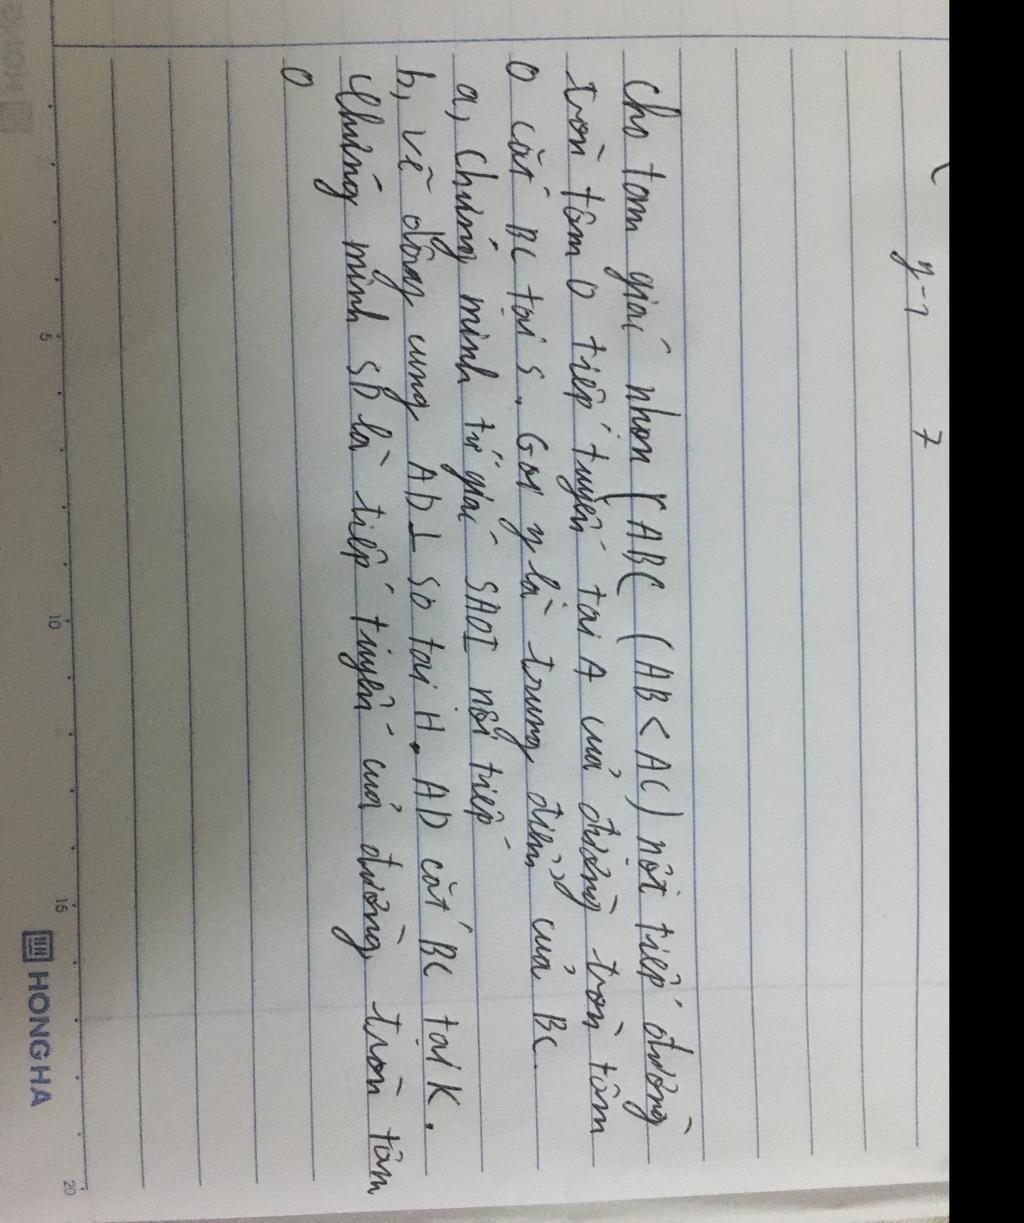 y-1 7
Cho tam giác nhọn (ABC (AB < AC) nội tiếp đường
tròn tâm O tiếp tuyến tại A của đường tròn tâm
O cắt BC tại S. Gọi y là trung điểm của BC.
a, Chứng minh tứ giác SAOI nội tiếp
b, vẽ dây cung AD ⊥ SO tại H. AD cắt BC tại K.
Chứng minh SD là tiếp tuyến của đường tròn tâm
O
5 10 15 20
HONG HA